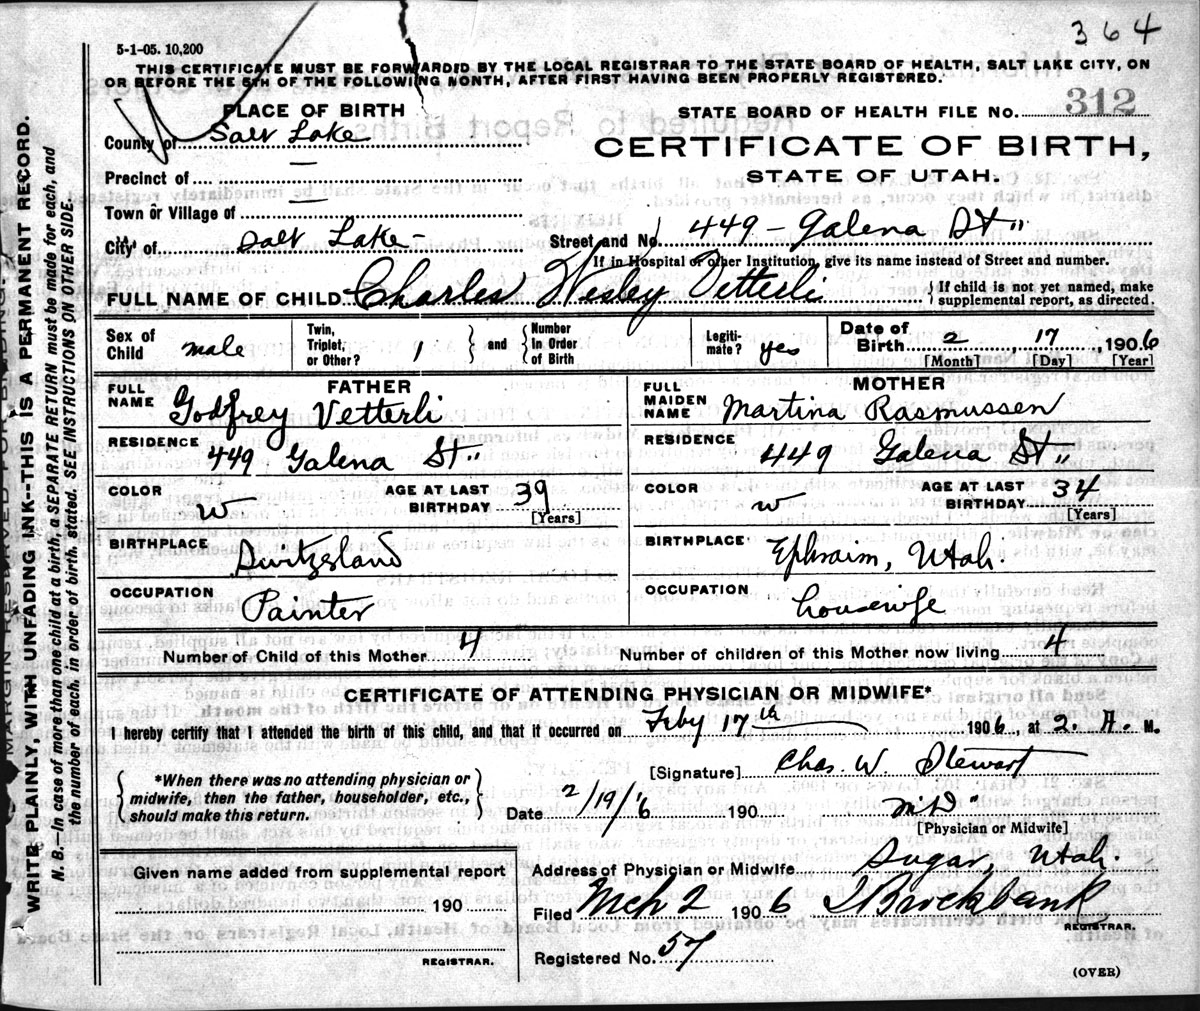 364
5-1-05. 10,200
THIS CERTIFICATE MUST BE FORWARDED BY THE LOCAL REGISTRAR TO THE STATE BOARD OF HEALTH, SALT LAKE CITY, ON
OR BEFORE THE 5TH OF THE FOLLOWING MONTH, AFTER FIRST HAVING BEEN PROPERLY REGISTERED.
PLACE OF BIRTH
STATE BOARD OF HEALTH FILE No. 312
County of Salt Lake
CERTIFICATE OF BIRTH,
Precinct of —
STATE OF UTAH.
Town or Village of —
City of Salt Lake - Street and No. 449 - Galena St "
If in Hospital or other Institution, give its name instead of Street and number.
FULL NAME OF CHILD Charles Wesley Vetterli { If child is not yet named, make supplemental report, as directed.
Sex of Child male Twin, Triplet, or Other? 1 } and { Number in Order of Birth Legiti-mate? yes Date of Birth 2 17, 1906
[Month] [Day] [Year]
FATHER
FULL NAME Godfrey Vetterli
RESIDENCE 449 Galena St "
COLOR W AGE AT LAST BIRTHDAY 39
[Years]
BIRTHPLACE Switzsland
OCCUPATION Painter
MOTHER
FULL MAIDEN NAME Martina Rasmussen
RESIDENCE 449 Galena St "
COLOR W AGE AT LAST BIRTHDAY 34
[Years]
BIRTHPLACE Ephraim, Utah.
OCCUPATION housewife
Number of Child of this Mother 4 Number of children of this Mother now living 4
CERTIFICATE OF ATTENDING PHYSICIAN OR MIDWIFE*
I hereby certify that I attended the birth of this child, and that it occurred on Feby 17th 1906, at 2. A. M.
{ *When there was no attending physician or midwife, then the father, householder, etc., should make this return. }
[Signature] Chas. W. Stewart
Date 2/19/'6 190 M.D. "
[Physician or Midwife]
Given name added from supplemental report
190
REGISTRAR.
Address of Physician or Midwife Sugar, Utah.
Filed Mch 2 1906 T Brockbank
REGISTRAR.
Registered No. 57
(OVER)
WRITE PLAINLY, WITH UNFADING INK--THIS IS A PERMANENT RECORD.
N. B.—In case of more than one child at a birth, a SEPARATE RETURN must be made for each, and
the number of each, in order of birth, stated. SEE INSTRUCTIONS ON OTHER SIDE.
MARGIN RESERVED FOR BINDING